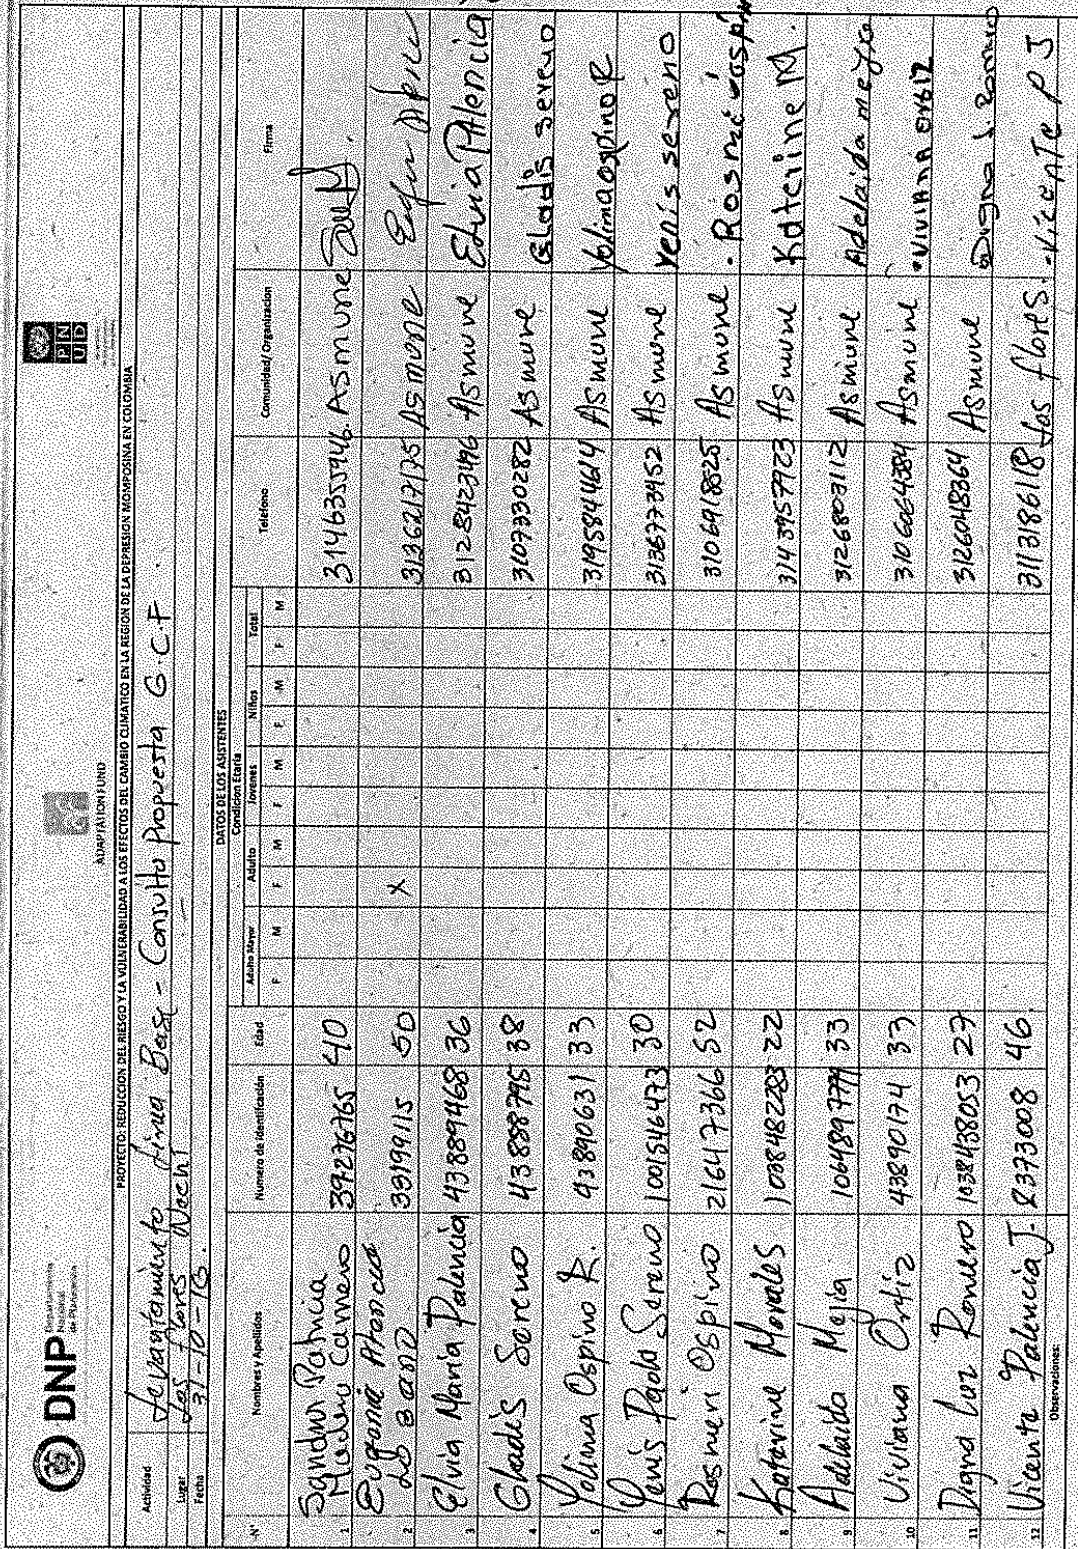 DNP Departamento Nacional de Planeación
ADAPTATION FUND
PNUD
PROYECTO: REDUCCION DEL RIESGO Y LA VULNERABILIDAD A LOS EFECTOS DEL CAMBIO CLIMATICO EN LA REGION DE LA DEPRESION MOMPOSINA EN COLOMBIA
Actividad Levantamiento Linea Base - Consulta Propuesta G.C.F.
Lugar Las Flores Nechí
Fecha 31-10-16.
DATOS DE LOS ASISTENTES
N° Nombres y Apellidos Numero de Identificación Edad Condicion Etaria Telefono Comunidad/ Organizacion Firma
Adulto Mayor Adulto Jovenes Niños Total
F M F M F M F M F M
1 Sandra Patricia 39276765 40 Asmune
2 Eugenia 33199115 50 X 3136217175 Asmune
3 Elvia María Palencia 43889468 36 3128423496 Asmune Elvia Palencia
4 Gladis Sereno 43888795 38 3107330282 Asmune Gladis sereno
5 Yolima Ospino R. 43890631 33 3195844614 Asmune Yolima ospino R
6 Yenis Paola Sereno 1001546473 30 3136773452 Asmune Yenis sereno
7 Rosmeri Ospino 21647366 52 3106918525 Asmune
8 Katerine Morales 1038482283 22 3143957723 Asmune Kateline M.
9 Adelaida Mejía 1064897779 33 3126803112 Asmune Adelaida mejia
10 Viviana Ortiz 43890174 33 3106664384 Asmune VIVIANA ORTIZ
11 Digna Luz Romero 1038438053 27 3126048364 Asmune Digna L. Romero
12 Vicente Palencia J. 8373008 46 Las flores. Vicente P J
Observaciones: